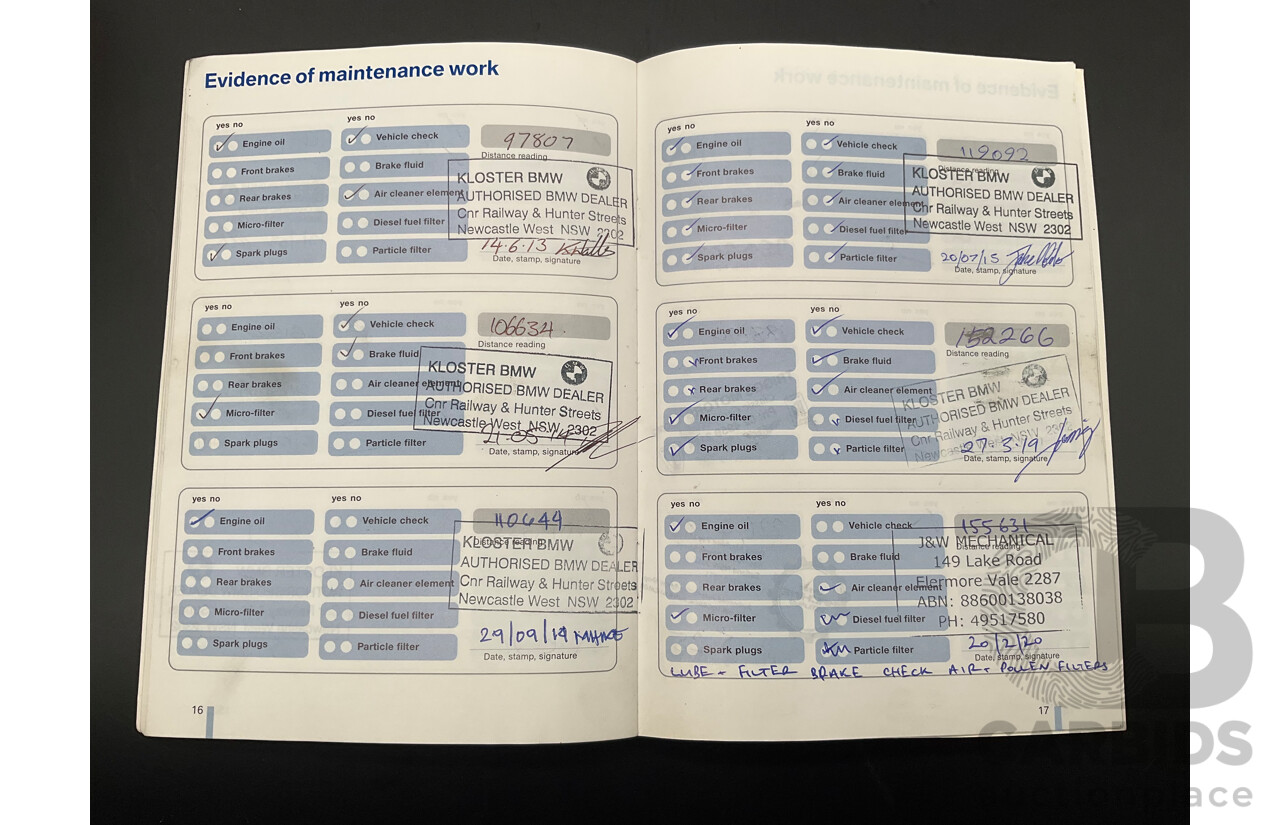 Evidence of maintenance work
yes no
yes no
Engine oil
Vehicle check
97807
Distance reading
Front brakes
Brake fluid
Rear brakes
Air cleaner element
Micro-filter
Diesel fuel filter
Spark plugs
Particle filter
KLOSTER BMW
AUTHORISED BMW DEALER
Cnr Railway & Hunter Streets
Newcastle West NSW 2302
14.6.13
Date, stamp, signature
yes no
yes no
Engine oil
Vehicle check
106634
Distance reading
Front brakes
Brake fluid
Rear brakes
Air cleaner element
Micro-filter
Diesel fuel filter
Spark plugs
Particle filter
KLOSTER BMW
AUTHORISED BMW DEALER
Cnr Railway & Hunter Streets
Newcastle West NSW 2302
21-05-14
Date, stamp, signature
yes no
yes no
Engine oil
Vehicle check
110644
Distance reading
Front brakes
Brake fluid
Rear brakes
Air cleaner element
Micro-filter
Diesel fuel filter
Spark plugs
Particle filter
KLOSTER BMW
AUTHORISED BMW DEALER
Cnr Railway & Hunter Streets
Newcastle West NSW 2302
29/09/14
Date, stamp, signature
16
yes no
yes no
Engine oil
Vehicle check
119092
Distance reading
Front brakes
Brake fluid
Rear brakes
Air cleaner element
Micro-filter
Diesel fuel filter
Spark plugs
Particle filter
KLOSTER BMW
AUTHORISED BMW DEALER
Cnr Railway & Hunter Streets
Newcastle West NSW 2302
20/07/15
Date, stamp, signature
yes no
yes no
Engine oil
Vehicle check
152266
Distance reading
Front brakes
Brake fluid
Rear brakes
Air cleaner element
Micro-filter
Diesel fuel filter
Spark plugs
Particle filter
KLOSTER BMW
AUTHORISED BMW DEALER
Cnr Railway & Hunter Streets
Newcastle West NSW 2302
27-3-19
Date, stamp, signature
yes no
yes no
Engine oil
Vehicle check
155631
Distance reading
Front brakes
Brake fluid
Rear brakes
Air cleaner element
Micro-filter
Diesel fuel filter
Spark plugs
Particle filter
J&W MECHANICAL
149 Lake Road
Elermore Vale 2287
ABN: 88600138038
PH: 49517580
20/2/20
Date, stamp, signature
LUBE + FILTER BRAKE CHECK AIR + POLLEN FILTERS
17
CARBIDS
auctionplace